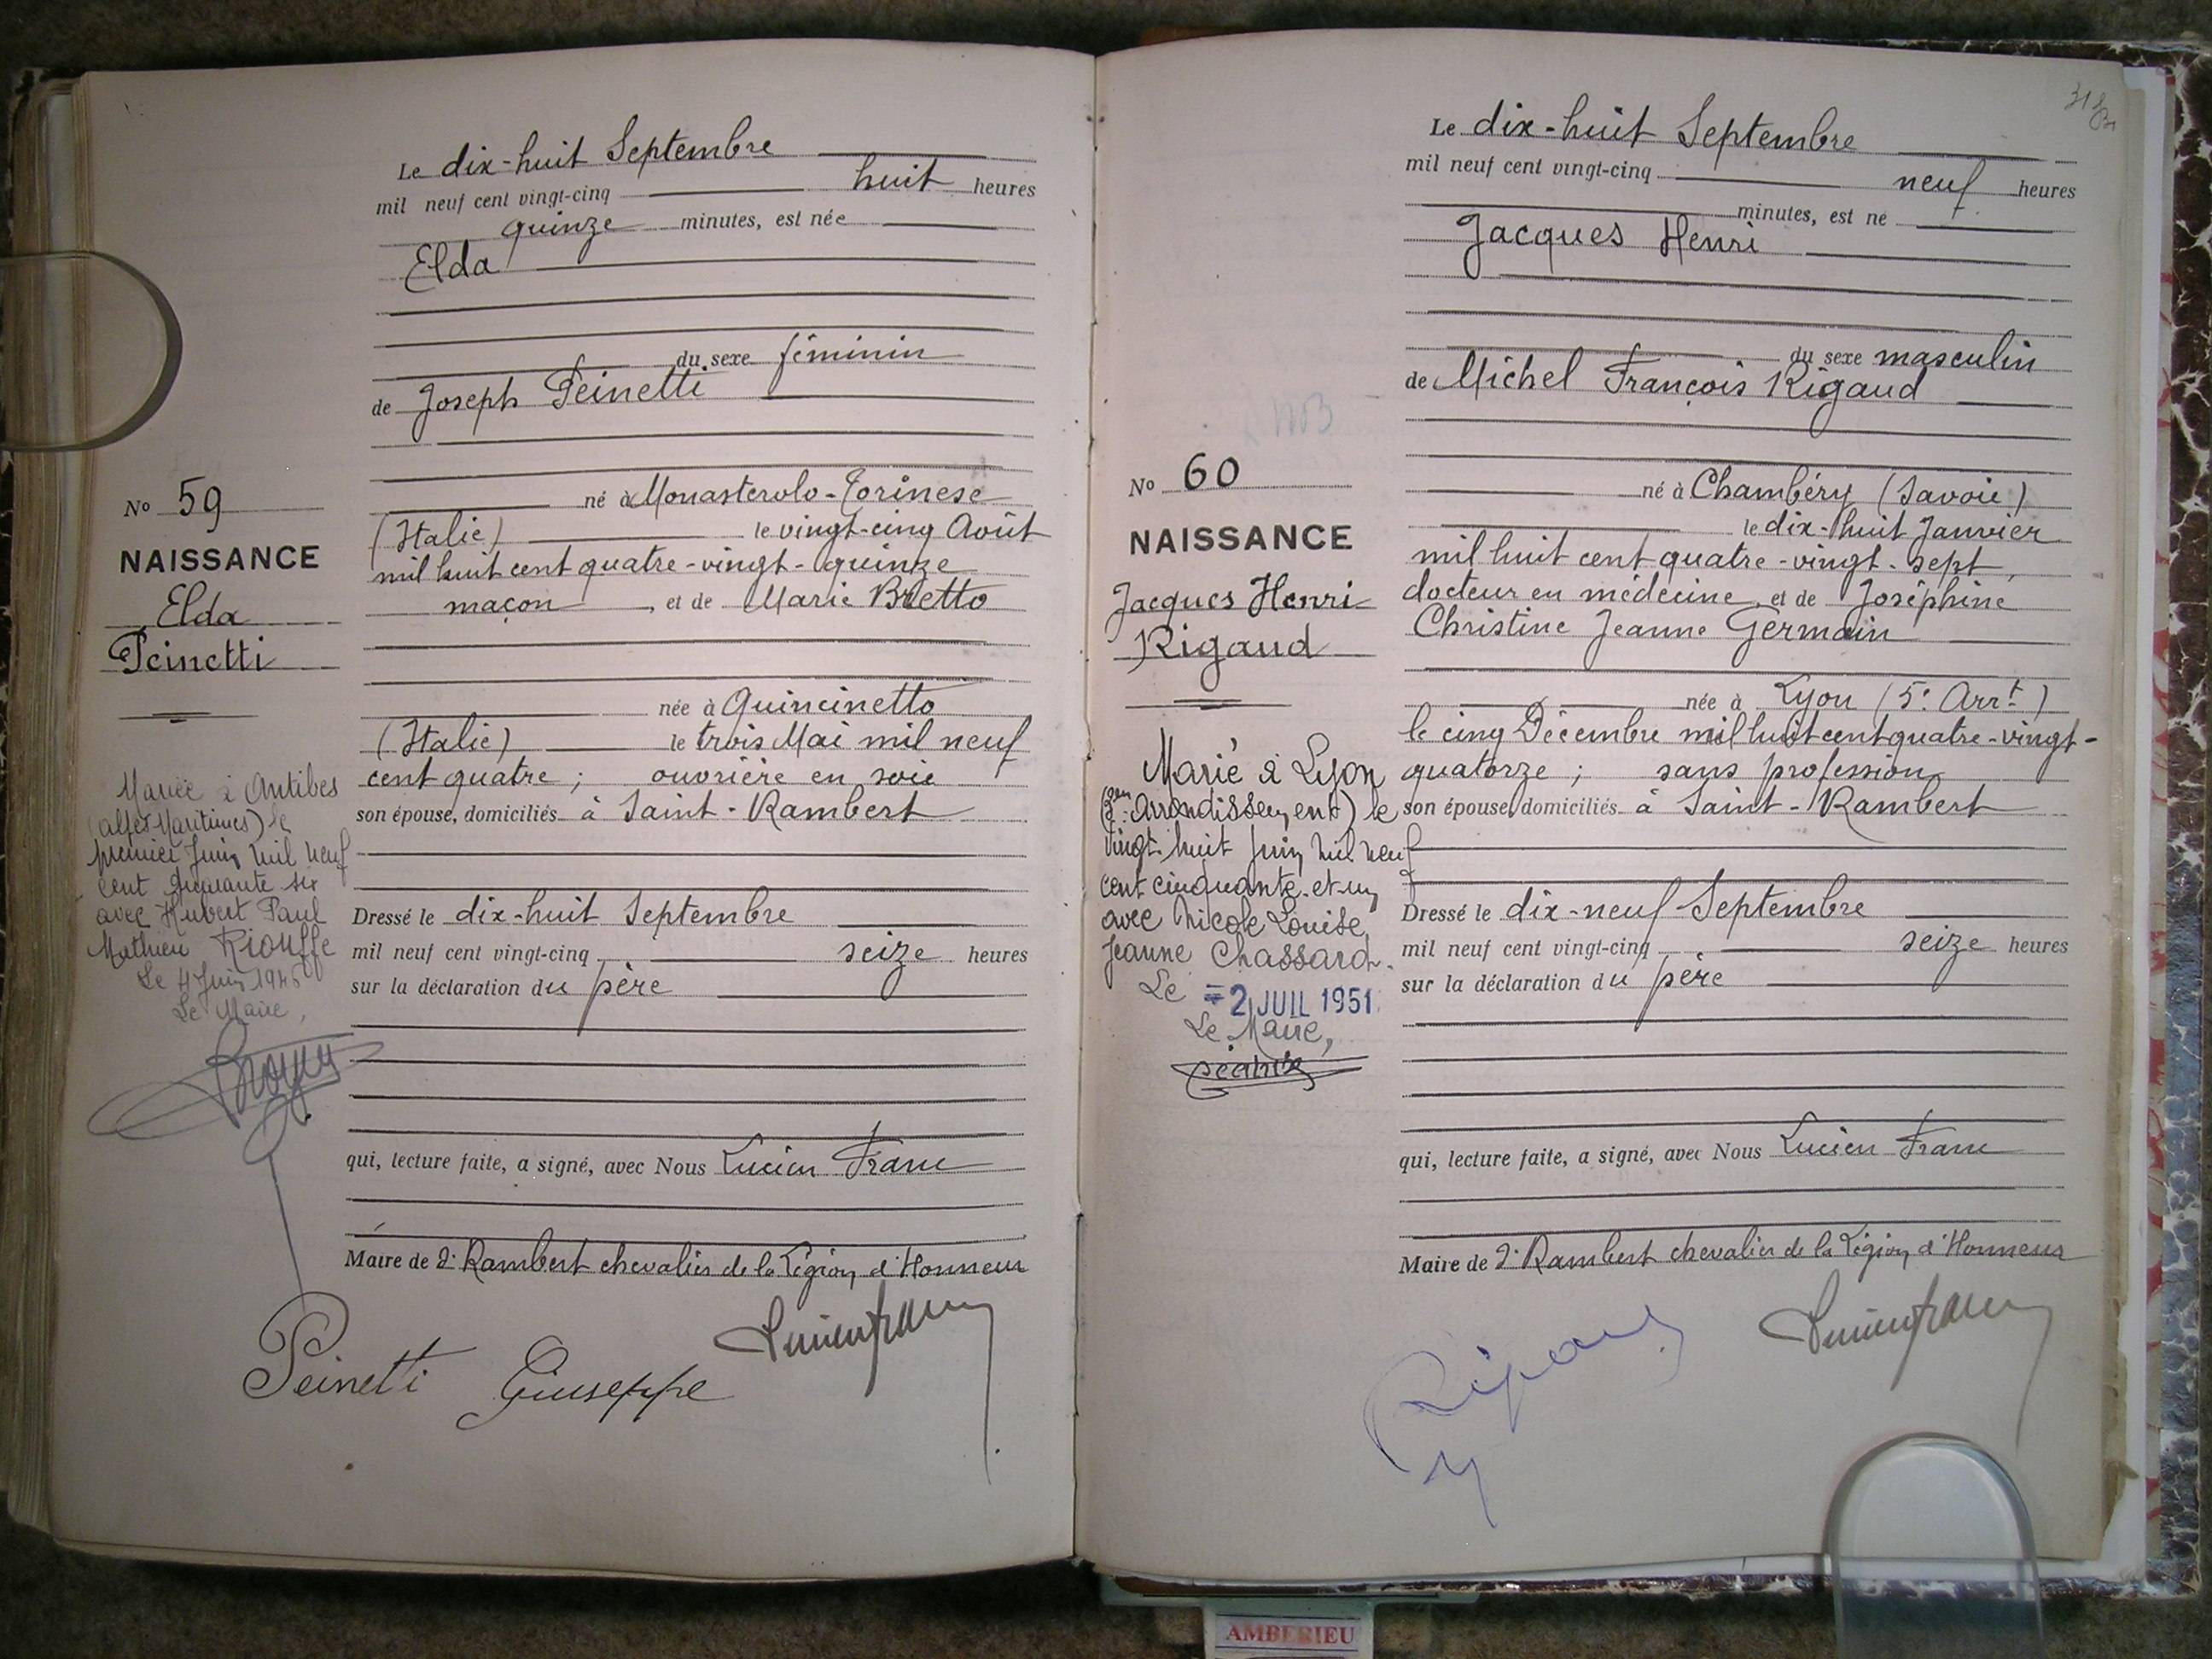 Le dix-huit Septembre
mil neuf cent vingt-cinq huit heures
quinze minutes, est née
Elda
du sexe féminin
de Joseph Peinetti
né à Monasterolo-Torinese
(Italie) le vingt-cinq Août
mil huit cent quatre-vingt-quinze
maçon, et de Marie Bretto
née à Quincinetto
(Italie) le trois Mai mil neuf
cent quatre ; ouvrière en soie
son épouse, domiciliés à Saint-Rambert
Dressé le dix-huit Septembre
mil neuf cent vingt-cinq seize heures
sur la déclaration du père
qui, lecture faite, a signé, avec Nous Lucien Franc
Maire de St Rambert chevalier de la Légion d'Honneur
Peinetti Giuseppe
No 59
NAISSANCE
Elda
Peinetti
Mariée à Antibes
(Alpes Maritimes) le
premier Juin mil neuf
cent quarante six
avec Hubert Paul
Mathieu Riouffe
Le 4 Juin 1946
Le Maire,
318
Le dix-huit Septembre
mil neuf cent vingt-cinq neuf heures
minutes, est né
Jacques Henri
du sexe masculin
de Michel François Rigaud
né à Chambéry (Savoie)
le dix-huit Janvier
mil huit cent quatre-vingt-sept,
docteur en médecine, et de Joséphine
Christine Jeanne Germain
née à Lyon (5e Arrt)
le cinq Décembre mil huit cent quatre-vingt-
quatorze ; sans profession
son épouse, domiciliés à Saint-Rambert
Dressé le dix-neuf Septembre
mil neuf cent vingt-cinq seize heures
sur la déclaration du père
qui, lecture faite, a signé, avec Nous Lucien Franc
Maire de St Rambert chevalier de la Légion d'Honneur
Rigaud
No 60
NAISSANCE
Jacques Henri
Rigaud
Marié à Lyon
arrondissement) le
vingt-huit Juin mil neuf
cent cinquante-et-un
avec Nicole Louise
Jeanne Chassard.
Le =2 JUIL 1951
Le Maire,
AMBERIEU